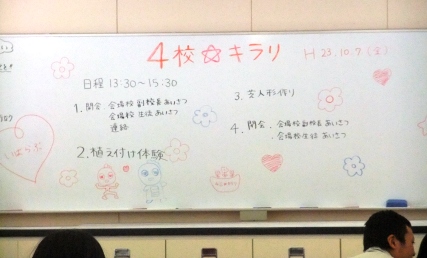 4校☆キラリ
H23.10.7(金)
日程 13:30～15:30
1. 開会. 会場校 副校長あいさつ
会場校 生徒 あいさつ
連絡
2. 植え付け体験
3. 苔人形作り
4. 閉会. . 会場校副校長あいさつ
. 会場校生徒 あいさつ